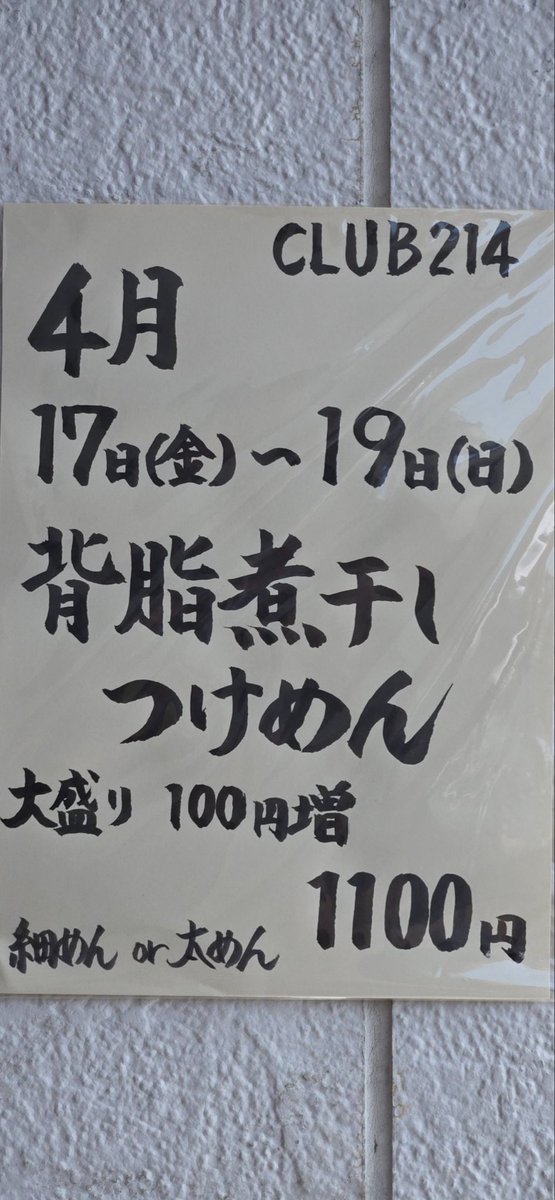 CLUB214
4月
17日(金)〜19日(日)
背脂煮干し
つけめん
大盛り 100円増
1100円
細めん or 太めん